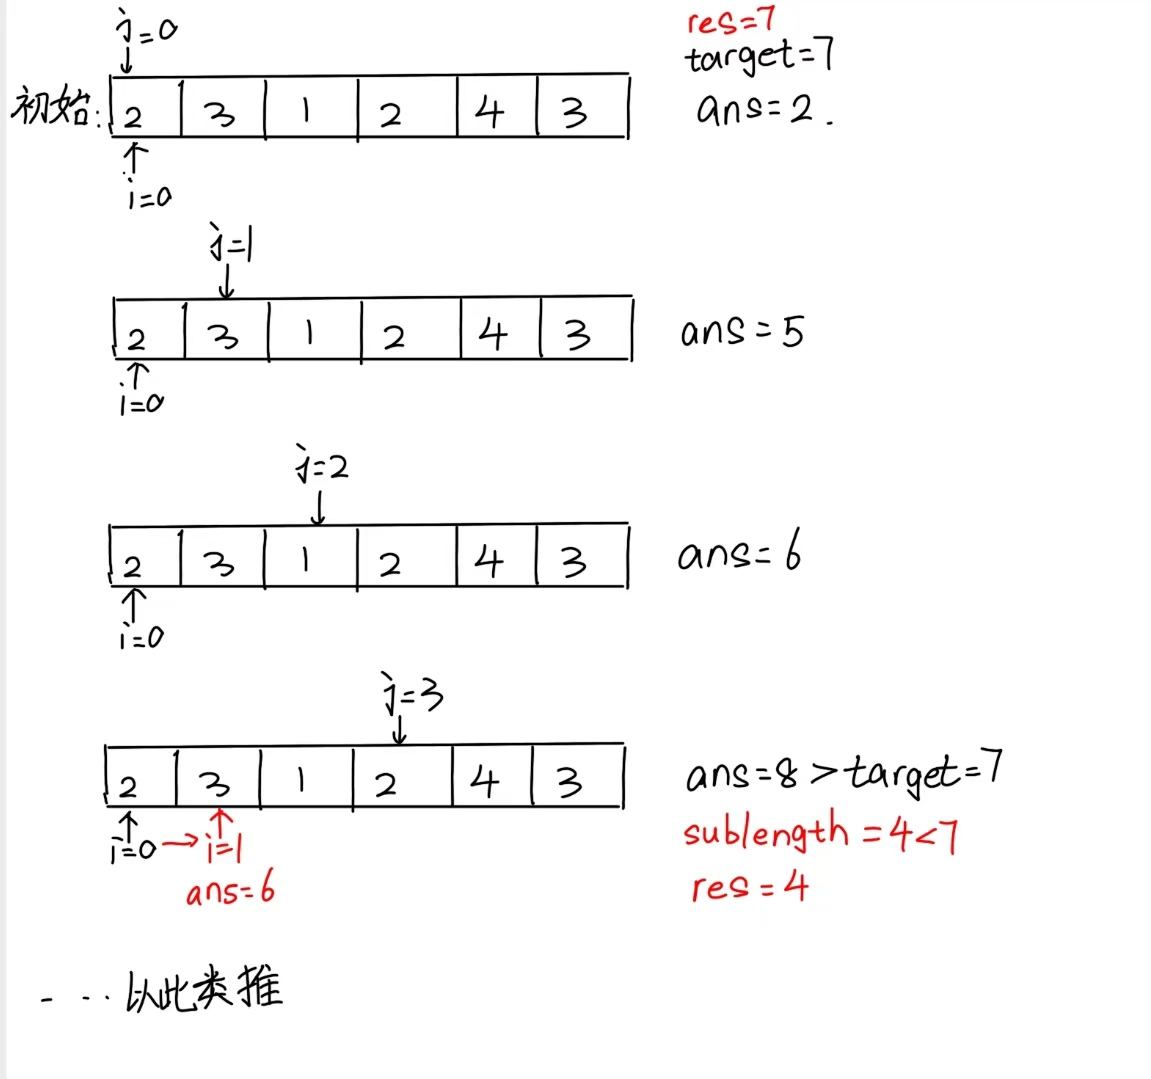 j=0
res=7
target=7
初始: 2 3 1 2 4 3
ans=2.
i=0
j=1
2 3 1 2 4 3
ans=5
i=0
j=2
2 3 1 2 4 3
ans=6
i=0
j=3
2 3 1 2 4 3
ans=8>target=7
i=0→i=1
sublength=4<7
ans=6
res=4
- ··· 以此类推